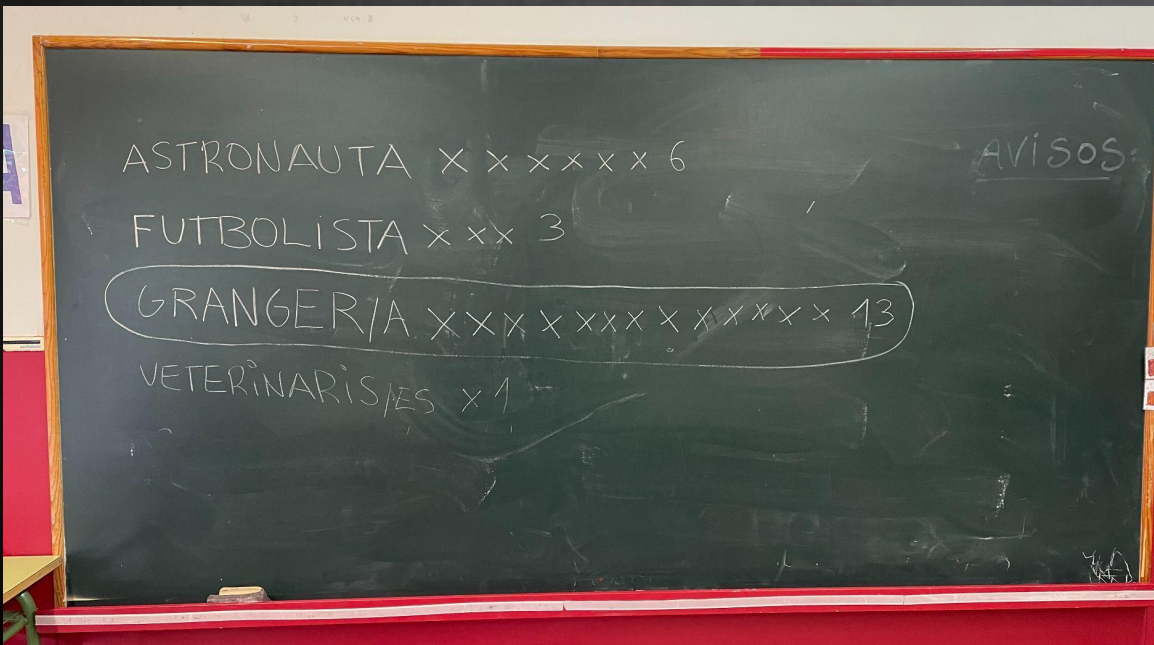 ASTRONAUTA x x x x x x 6
AVISOS:
FUTBOLISTA x x x 3
GRANGER/A x x x x x x x x x x x x x 13
VETERINARIS/ES x 1